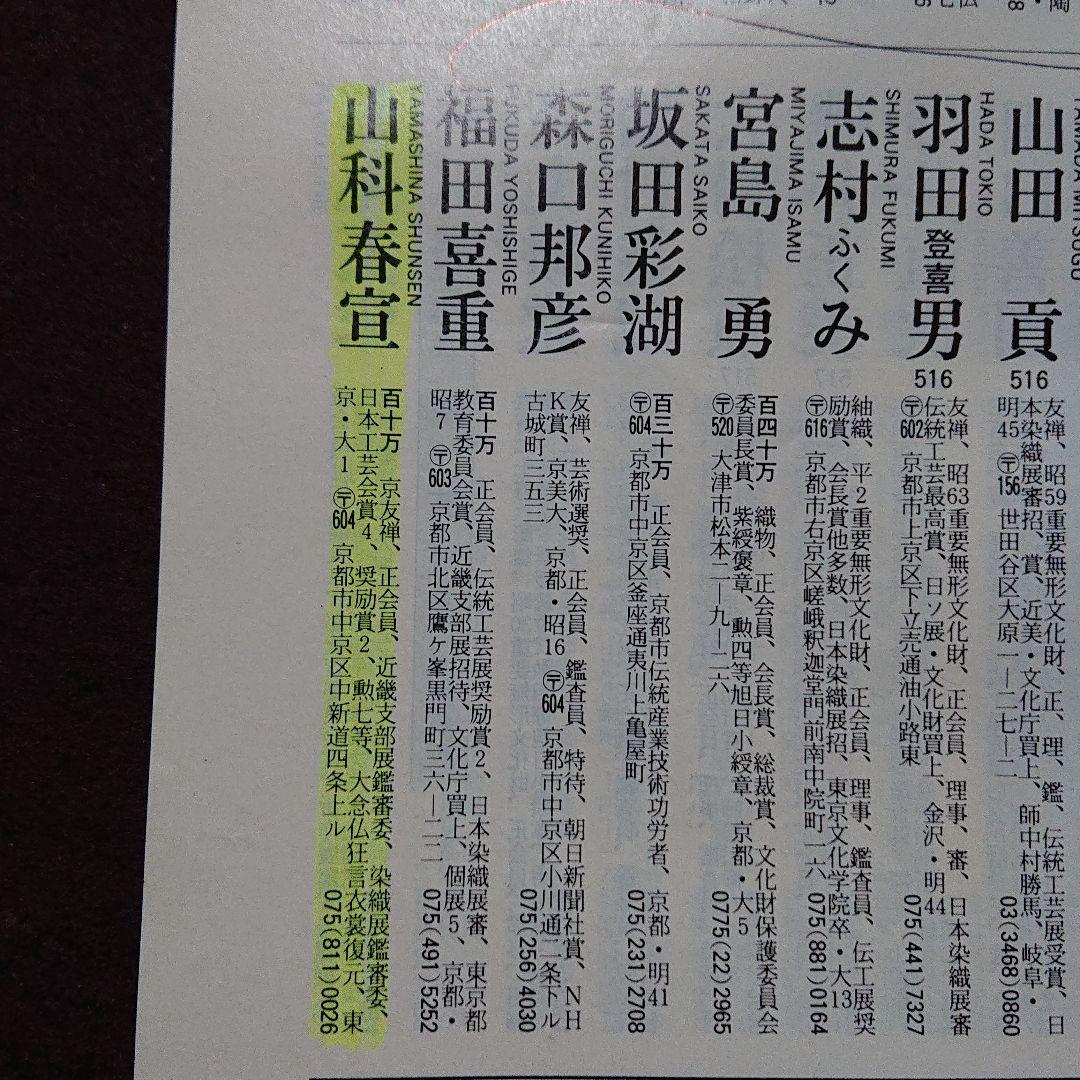 山田 貢
YAMADA MITSUGU
516
友禅、昭59重要無形文化財、正、理、鑑、伝統工芸展受賞、日
本染織展審招、賞、近美・文化庁買上、師中村勝馬、岐阜・
明45 〒156 世田谷区大原一―二七―二 03(3468)0860
羽田登喜男
HADA TOKIO
516
友禅、昭63重要無形文化財、正会員、理事、審、日本染織展審
伝統工芸最高賞、日ソ展・文化財買上、金沢・明44
〒602 京都市上京区下立売通油小路東 075(441)7327
志村ふくみ
SHIMURA FUKUMI
紬織、平2重要無形文化財、正会員、理事、鑑査員、伝工展奨
励賞、会長賞他多数、日本染織展招、東京文化学院卒・大13
〒616 京都市右京区嵯峨釈迦堂門前南中院町一六 075(881)0164
宮島 勇
MIYAJIMA ISAMU
百四十万 織物、正会員、会長賞、総裁賞、文化財保護委員会
委員長賞、紫綬褒章、勲四等旭日小綬章、京都・大5
〒520 大津市松本二―九―二六 0775(22)2965
坂田彩湖
SAKATA SAIKO
百三十万 正会員、京都市伝統産業技術功労者、京都・明41
〒604 京都市中京区釜座通夷川上亀屋町 075(231)2708
森口邦彦
MORIGUCHI KUNIHIKO
友禅、芸術選奨、正会員、鑑査員、特待、朝日新聞社賞、NH
K賞、京美大、京都・昭16 〒604 京都市中京区小川通二条下ル
古城町三五三 075(256)4030
福田喜重
FUKUDA YOSHISHIGE
百十万 正会員、伝統工芸展奨励賞2、日本染織展審、東京都
教育委員会賞、近畿支部展招待、文化庁買上、個展5、京都・
昭7 〒603 京都市北区鷹ヶ峯黒門町三六―二二 075(491)5252
山科春宣
YAMASHINA SHUNSEN
百十万 京友禅、正会員、近畿支部展鑑審委、染織展鑑審委、
日本工芸会賞4、奨励賞2、勲七等、大念仏狂言衣裳復元、東
京・大1 〒604 京都市中京区中新道四条上ル 075(811)0026